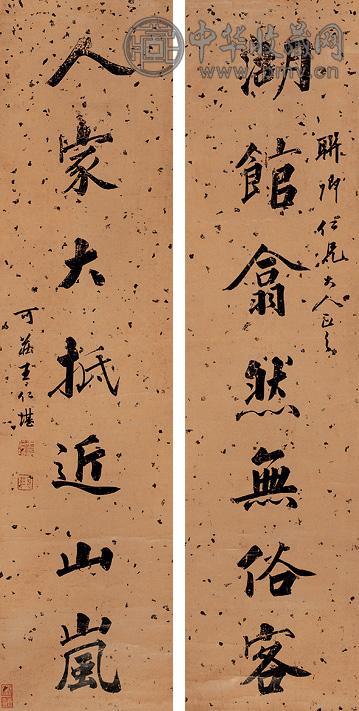 聯卿仁兄大人正之
湖館翕然無俗客
人家大抵近山嵐
可莊王仁堪
中华收藏网